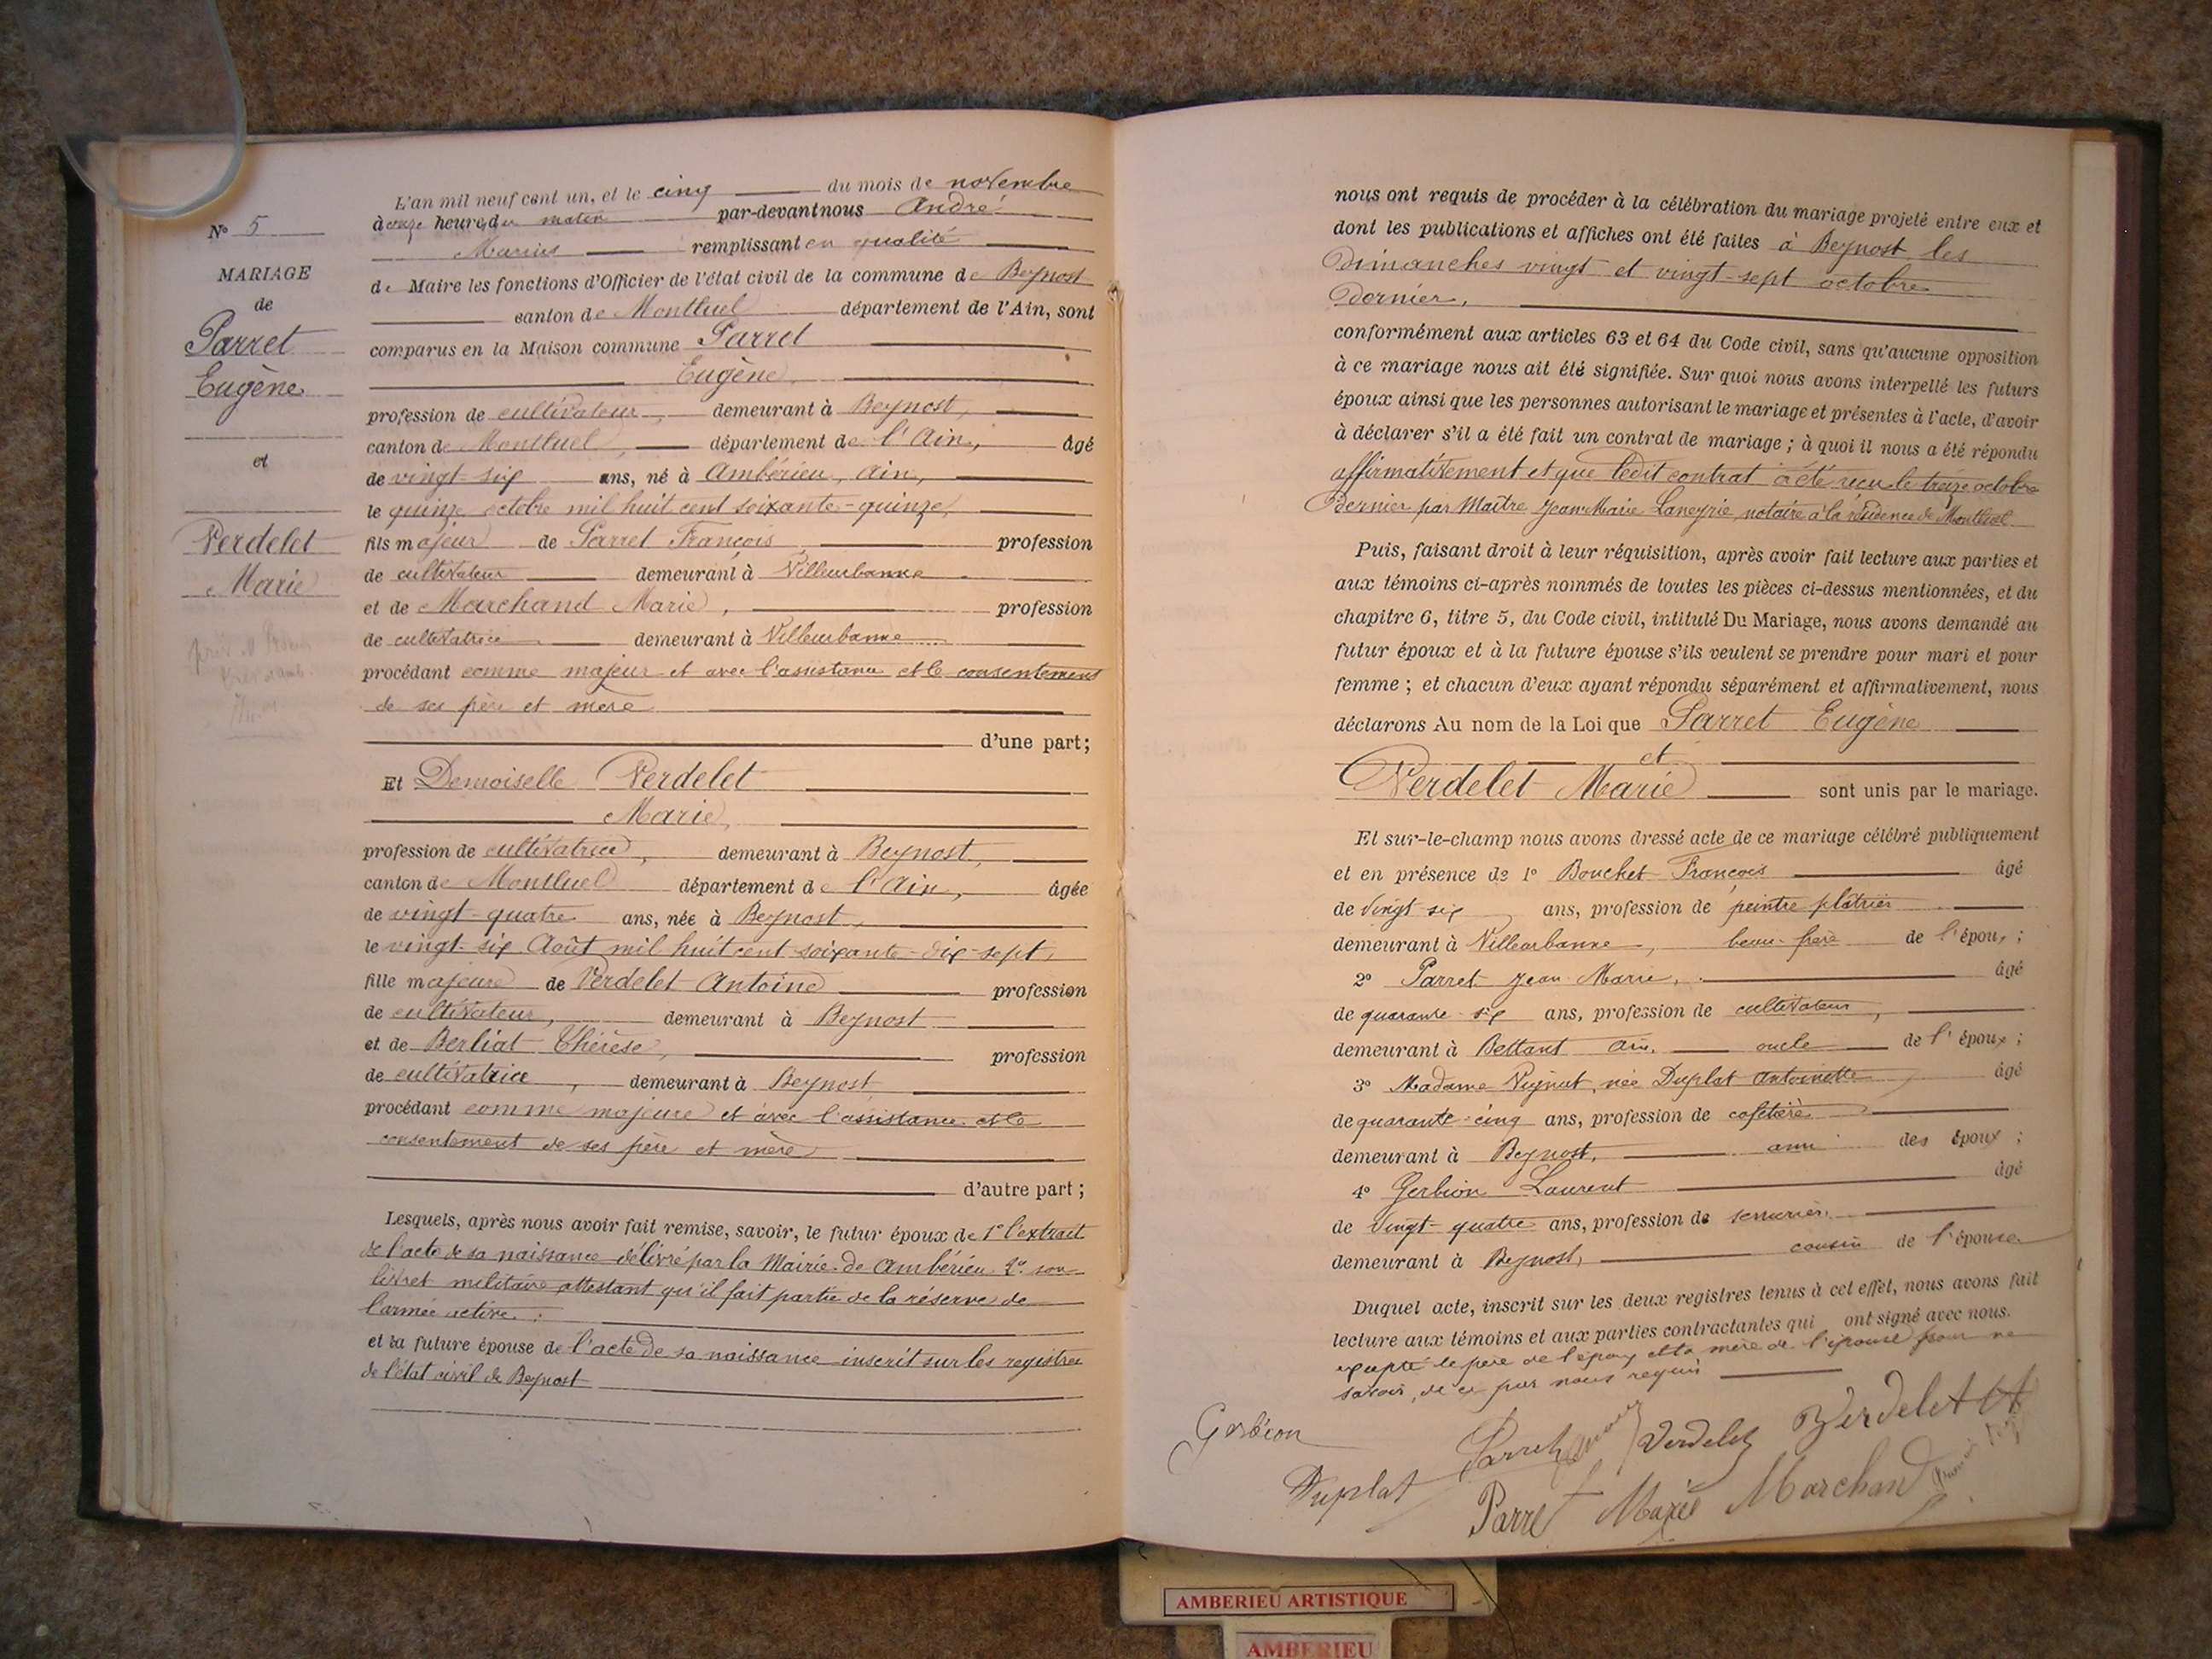 N° 5
MARIAGE
de
Parret
Eugène
et
Verdelet
Marie
L'an mil neuf cent un, et le cinq du mois de novembre
à onze heures du matin par-devant nous André
Marius remplissant en qualité
de Maire les fonctions d'Officier de l'état civil de la commune de Beynost
canton de Montluel département de l'Ain, sont
comparus en la Maison commune Parret
Eugène,
profession de cultivateur, demeurant à Beynost,
canton de Montluel, département de l'Ain, âgé
de vingt-six ans, né à Ambérieu, Ain,
le quinze octobre mil huit cent soixante-quinze,
fils majeur de Parret François, profession
de cultivateur demeurant à Villeurbanne
et de Marchand Marie, profession
de cultivatrice demeurant à Villeurbanne
procédant comme majeur et avec l'assistance et le consentement
de ses père et mère
d'une part;
Et Demoiselle Verdelet
Marie,
profession de cultivatrice, demeurant à Beynost,
canton de Montluel département de l'Ain, âgée
de vingt-quatre ans, née à Beynost,
le vingt-six Août mil huit cent soixante-dix-sept,
fille majeure de Verdelet Antoine profession
de cultivateur, demeurant à Beynost
et de Berliat Thérèse, profession
de cultivatrice, demeurant à Beynost
procédant comme majeure et avec l'assistance et le
consentement de ses père et mère
d'autre part;
Lesquels, après nous avoir fait remise, savoir, le futur époux de 1° l'extrait
de l'acte de sa naissance délivré par la Mairie de Ambérieu 2° son
livret militaire attestant qu'il fait partie de la réserve de
l'armée active;
et la future épouse de l'acte de sa naissance inscrit sur les registres
de l'état civil de Beynost
nous ont requis de procéder à la célébration du mariage projeté entre eux et
dont les publications et affiches ont été faites à Beynost les
Dimanches vingt et vingt-sept octobre
Dernier,
conformément aux articles 63 et 64 du Code civil, sans qu'aucune opposition
à ce mariage nous ait été signifiée. Sur quoi nous avons interpellé les futurs
époux ainsi que les personnes autorisant le mariage et présentes à l'acte, d'avoir
à déclarer s'il a été fait un contrat de mariage; à quoi il nous a été répondu
affirmativement et que ledit contrat a été reçu le treize octobre
Dernier par Maître Jean Marie Laneyrie, notaire à la résidence de Montluel
Puis, faisant droit à leur réquisition, après avoir fait lecture aux parties et
aux témoins ci-après nommés de toutes les pièces ci-dessus mentionnées, et du
chapitre 6, titre 5, du Code civil, intitulé Du Mariage, nous avons demandé au
futur époux et à la future épouse s'ils veulent se prendre pour mari et pour
femme; et chacun d'eux ayant répondu séparément et affirmativement, nous
déclarons Au nom de la Loi que Parret Eugène
et
Verdelet Marie sont unis par le mariage.
Et sur-le-champ nous avons dressé acte de ce mariage célébré publiquement
et en présence de 1° Bouchet François âgé
de vingt six ans, profession de peintre plâtrier
demeurant à Villeurbanne, beau-frère de l'époux;
2° Parret Jean Marie, âgé
de quarante-six ans, profession de cultivateur,
demeurant à Bettant Ain, oncle de l'époux;
3° Madame née Duplat Antoinette âgé
de quarante-cinq ans, profession de cafetière
demeurant à Beynost, ami des époux;
4° Gerbion Laurent âgé
de vingt-quatre ans, profession de serrurier,
demeurant à Beynost, cousin de l'épouse
Duquel acte, inscrit sur les deux registres tenus à cet effet, nous avons fait
lecture aux témoins et aux parties contractantes qui ont signé avec nous.
excepté le père de l'époux et la mère de l'épouse pour ne
savoir, de ce par nous requis
Gerbion
Parret Verdelet Verdelet
Duplat
Parret Marie Marchand
AMBERIEU ARTISTIQUE
AMBERIEU